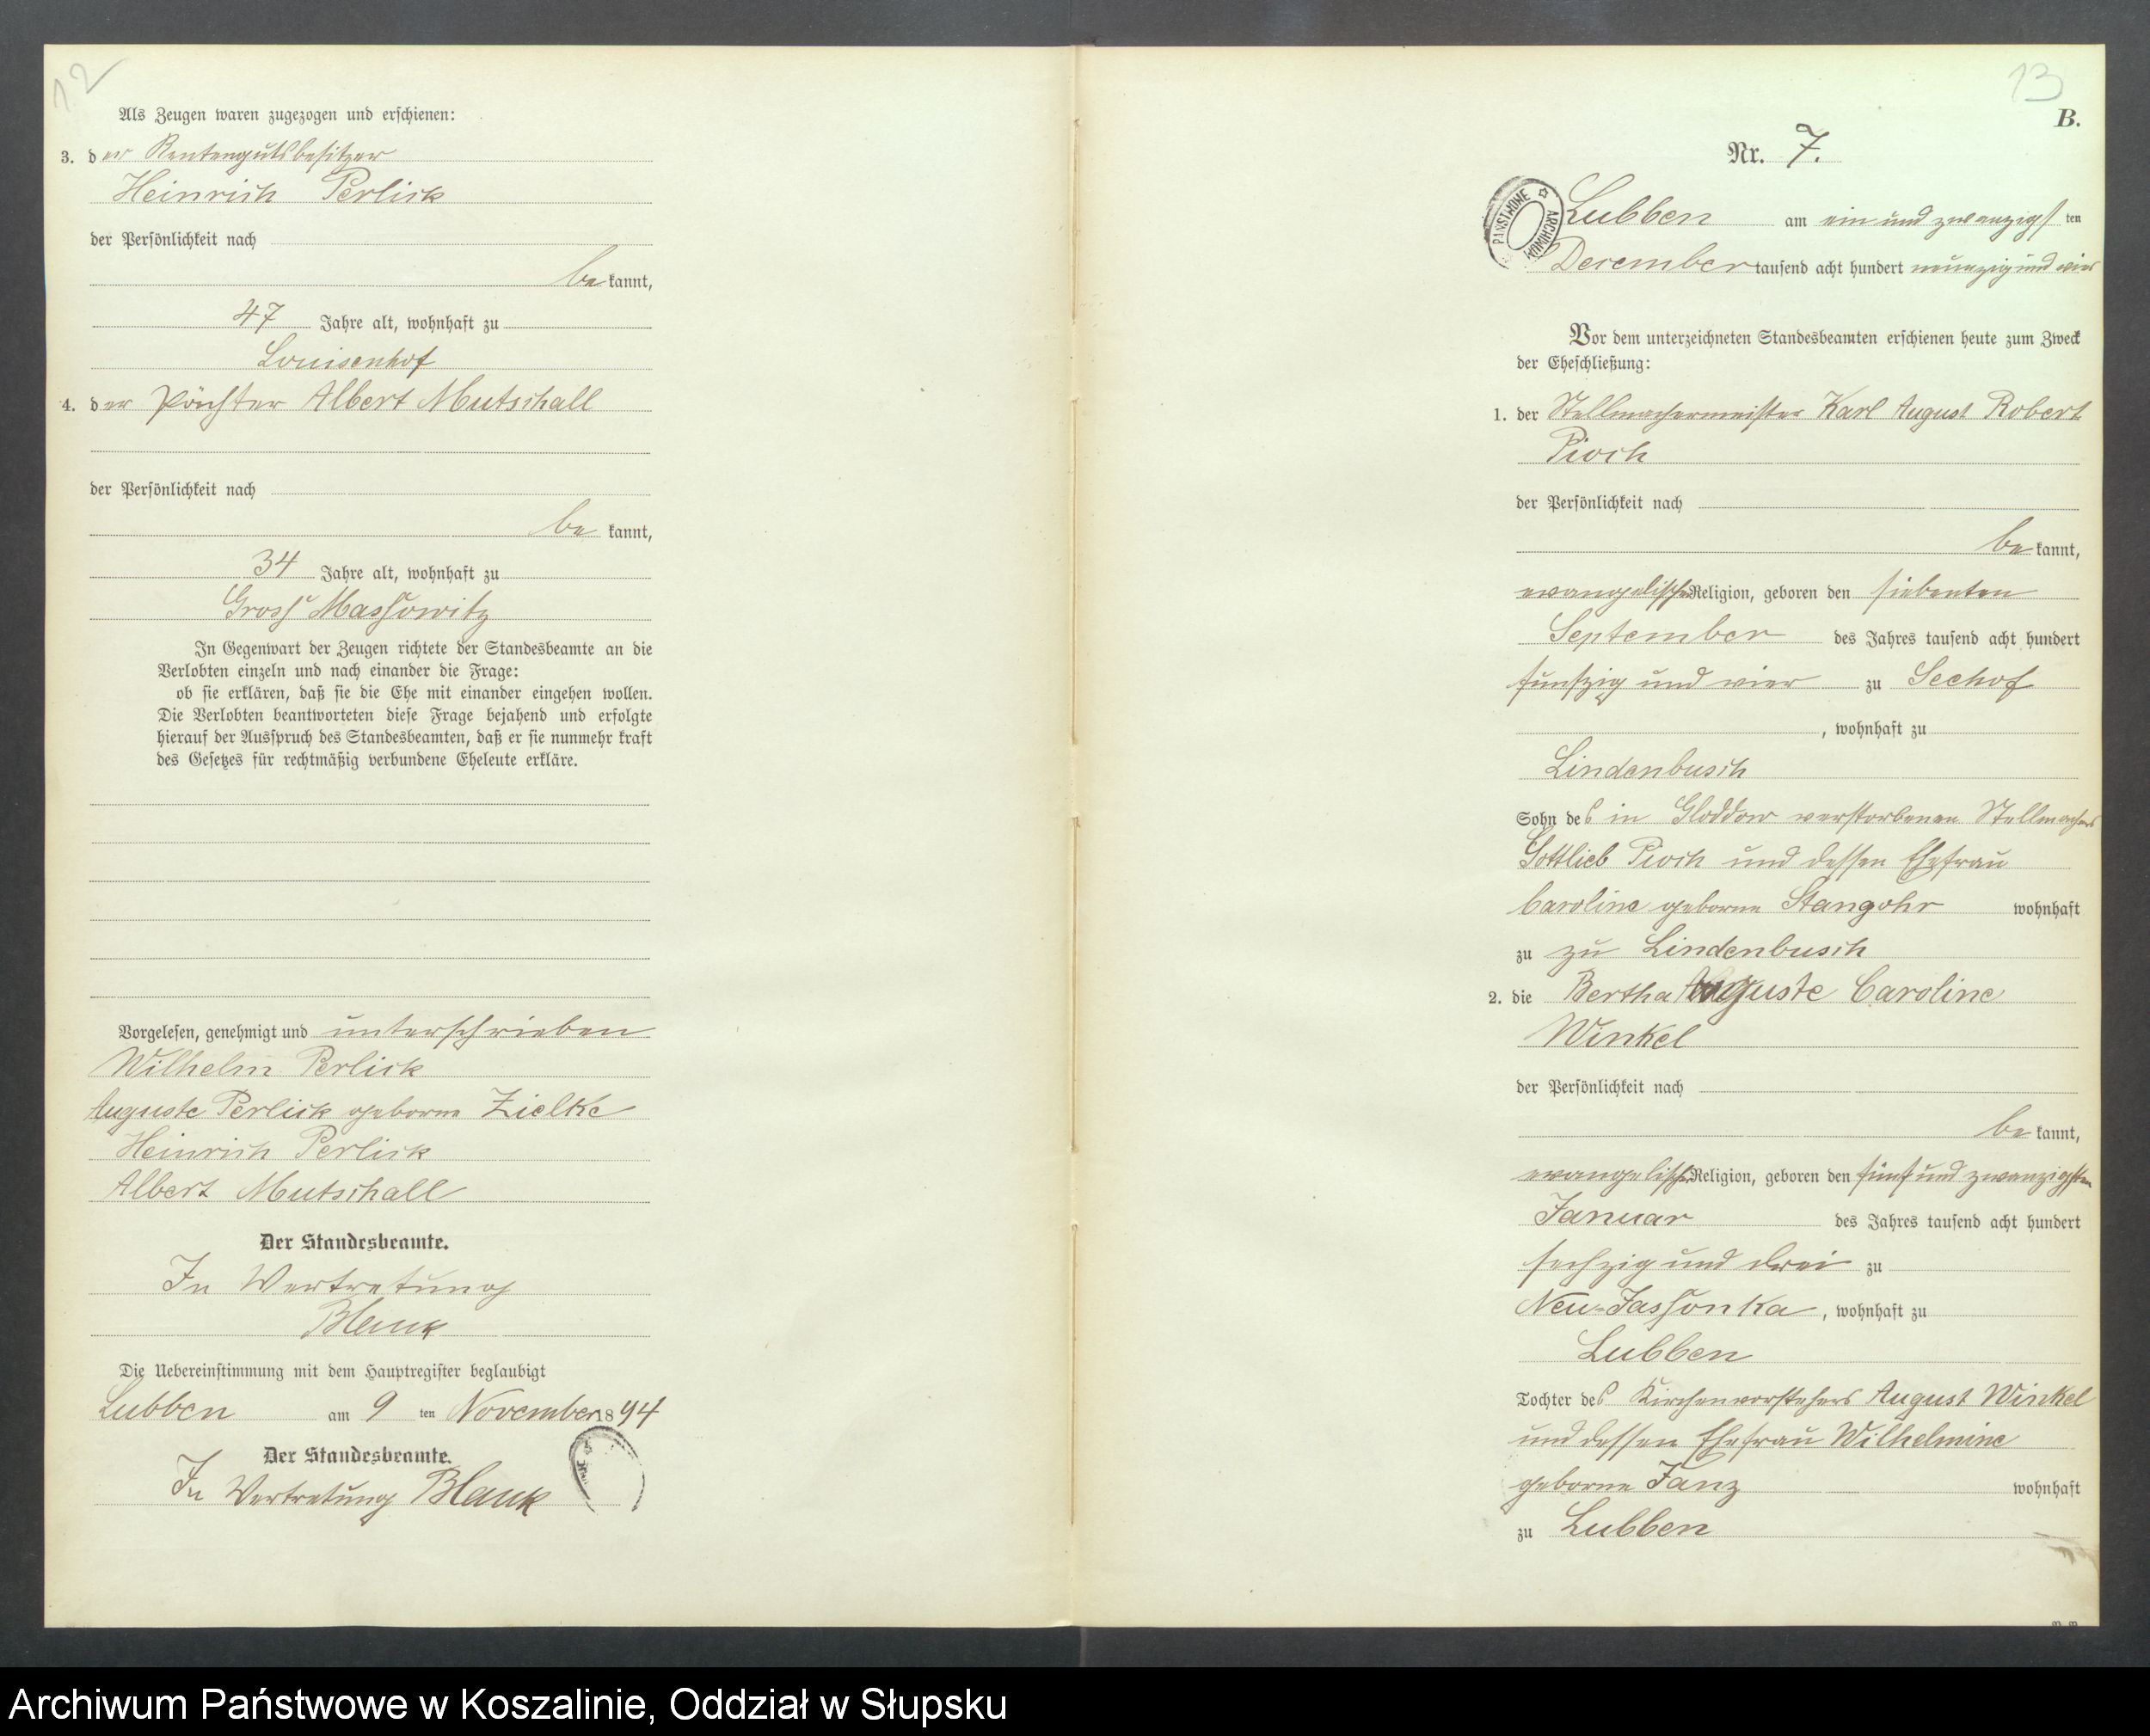 12
Als Zeugen waren zugezogen und erschienen:
3. der Rentengutsbesitzer
Heinrich Perlick
der Persönlichkeit nach
bekannt,
47 Jahre alt, wohnhaft zu
Louisenhof
4. der Pächter Albert Mutschall
der Persönlichkeit nach
bekannt,
34 Jahre alt, wohnhaft zu
Gross Massowitz
In Gegenwart der Zeugen richtete der Standesbeamte an die
Verlobten einzeln und nach einander die Frage:
ob sie erklären, daß sie die Ehe mit einander eingehen wollen.
Die Verlobten beantworteten diese Frage bejahend und erfolgte
hierauf der Ausspruch des Standesbeamten, daß er sie nunmehr kraft
des Gesetzes für rechtmäßig verbundene Eheleute erkläre.
Vorgelesen, genehmigt und unterschrieben
Wilhelm Perlick
Auguste Perlick geborne Zielke
Heinrich Perlick
Albert Mutschall
Der Standesbeamte.
In Vertretung
Blank
Die Uebereinstimmung mit dem Hauptregister beglaubigt
Lubben am 9 ten November 1894
Der Standesbeamte.
In Vertretung Blank
13
B.
Nr. 7.
PAŃSTWOWE ARCHIWUM
Lubben am ein und zwanzigsten
December tausend acht hundert neunzig und vier
Vor dem unterzeichneten Standesbeamten erschienen heute zum Zweck
der Eheschließung:
1. der Stellmachermeister Karl August Robert
Pioch
der Persönlichkeit nach
bekannt,
evangelischer Religion, geboren den siebenten
September des Jahres tausend acht hundert
fünfzig und vier zu Seehof
, wohnhaft zu
Lindenbusch
Sohn des in Gloddow verstorbenen Stellmachers
Gottlieb Pioch und dessen Ehefrau
Caroline geborne Stangohr wohnhaft
zu zu Lindenbusch
2. die Bertha Auguste Caroline
Winkel
der Persönlichkeit nach
bekannt,
evangelischer Religion, geboren den fünf und zwanzigsten
Januar des Jahres tausend acht hundert
sechzig und drei zu
Neu-Jassonka, wohnhaft zu
Lubben
Tochter des Kirchenvorstehers August Winkel
und dessen Ehefrau Wilhelmine
geborne Janz wohnhaft
zu Lubben
Archiwum Państwowe w Koszalinie, Oddział w Słupsku